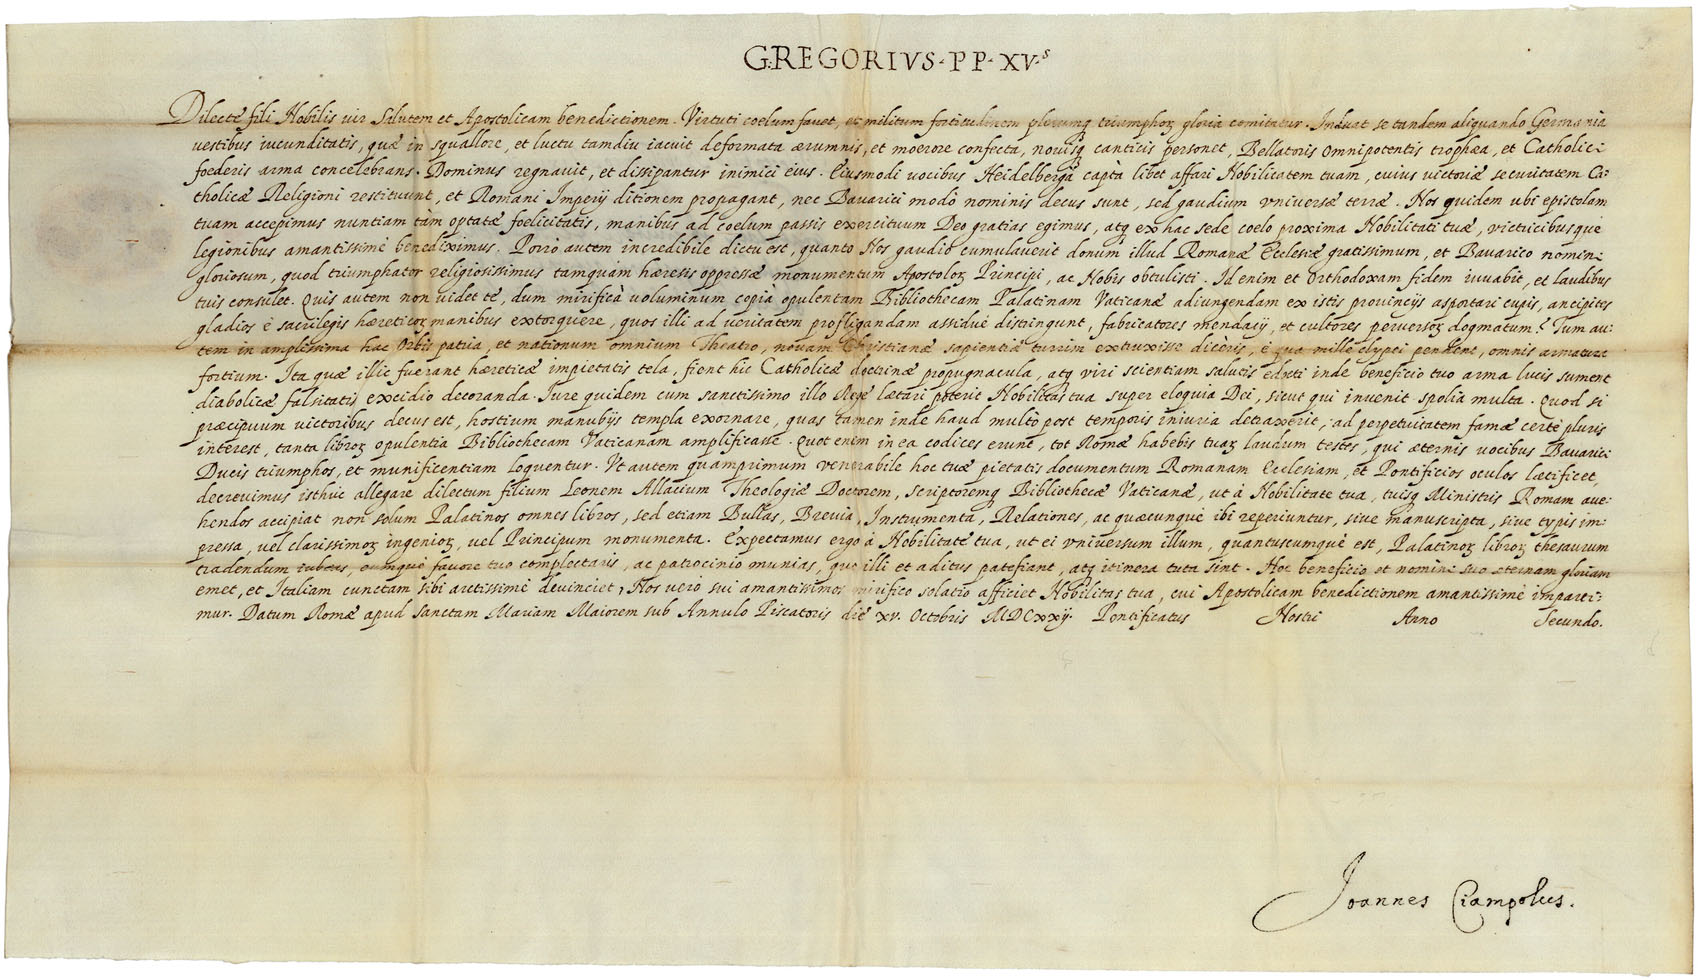 GREGORIVS · PP · XV·s
Dilecte fili Nobilis vir Salutem et Apostolicam benedictionem. Virtuti coelum favet, et militum fortitudinem plerumq triumphoꝝ gloria comitatur. Induat se tandem aliquando Germania
vestibus iucunditatis, quæ in squallore, et luctu tamdiu iacuit deformata ærumnis, et moerore confecta, novisq canticis personet, Bellatoris omnipotentis trophæa, et Catholici
foederis arma concelebrans. Dominus regnavit, et dissipantur inimici eius. Eiusmodi vocibus Heidelbergà captà libet affari Nobilitatem tuam, cuius victoriæ securitatem Ca-
tholicæ Religioni restituunt, et Romani Imperij ditionem propagant, nec Bavarici modò nominis decus sunt, sed gaudium vniversæ terræ. Nos quidem ubi epistolam
tuam accepimus nuntiam tàm optatæ foelicitatis, manibus ad coelum passis exercituum Deo gratias egimus, atq ex hac sede coelo proxima Nobilitati tuæ, victricibusque
legionibus amantissimè benediximus. Porrò autem incredibile dictu est, quanto Nos gaudio cumulaverit donum illud Romanæ Ecclesiæ gratissimum, et Bavarico nomini
gloriosum, quod triumphator religiosissimus tamquam hæresis oppressæ monumentum Apostoloꝝ Principi, ac Nobis obtulisti. Id enim et orthodoxam fidem iuvabit, et laudibus
tuis consulet. Quis autem non videt te, dum mirificà voluminum copià opulentam Bibliothecam Palatinam Vaticanæ adiungendam ex istis provincijs asportari cupis, ancipites
gladios è sacrilegis hæreticoꝝ manibus extorquere, quos illi ad veritatem profligandam assiduè distringunt, fabricatores mendacij, et cultores perversoꝝ dogmatum? Tum au-
tem in amplissima hac Orbis patria, et nationum omnium Theatro, novam Christianæ sapientiæ turrim extruxisse dicèris, è qua mille clypei pendent, omnis armatura
fortium. Ita quæ illic fuerant hæreticæ impietatis tela, fient hic Catholicæ doctrinæ propugnacula, atq viri scientiam salutis edocti inde beneficio tuo arma lucis sument
diabolicæ falsitatis excidio decoranda. Iure quidem cum sanctissimo illo Rege lætari poterit Nobilitas tua super eloquia Dei, sicut qui invenit spolia multa. Quod si
præcipuum victoribus decus est, hostium manubijs templa exornare, quas tamen inde haud multò post temporis iniuria detraxerit; ad perpetuitatem famæ certè pluris
interest, tanta libroꝝ opulentia Bibliothecam Vaticanam amplificasse. Quot enim in ea codices erunt, tot Romæ habebis tuaꝝ laudum testes, qui æternis vocibus Bavarici
Ducis triumphos, et munificentiam loquentur. Vt autem quamprimum venerabile hoc tuæ pietatis documentum Romanam Ecclesiam, et Pontificios oculos lætificet,
decrevimus isthuc allegare dilectum filium Leonem Allacium Theologiæ Doctorem, Scriptoremq Bibliothecæ Vaticanæ, ut à Nobilitate tua, tuisq Ministris Romam ave-
hendos accipiat non solum Palatinos omnes libros, sed etiam Bullas, Brevia, Instrumenta, Relationes, ac quæcunque ibi reperiuntur, sive manuscripta, sive typis im-
pressa, vel clarissimoꝝ ingenioꝝ, vel Principum monumenta. Expectamus ergo à Nobilitate tua, ut ei vniversum illum, quantuscumquè est, Palatinoꝝ libroꝝ thesaurum
tradendum iubeas, eumque favore tuo complectaris, ac patrocinio munias, quo illi et aditus patefiant, atq itinera tuta sint. Hoc beneficio et nomini suo æternam gloriam
emet, et Italiam cunctam sibi arctissimè devinciet, Nos verò sui amantissimos mirifico solatio afficiet Nobilitas tua, cui Apostolicam benedictionem amantissimè imparti-
mur. Datum Romæ apud Sanctam Mariam Maiorem sub Annulo Piscatoris die xv. Octobris MDCxxij. Pontificatus Nostri Anno Secundo.
Joannes Ciampolus.